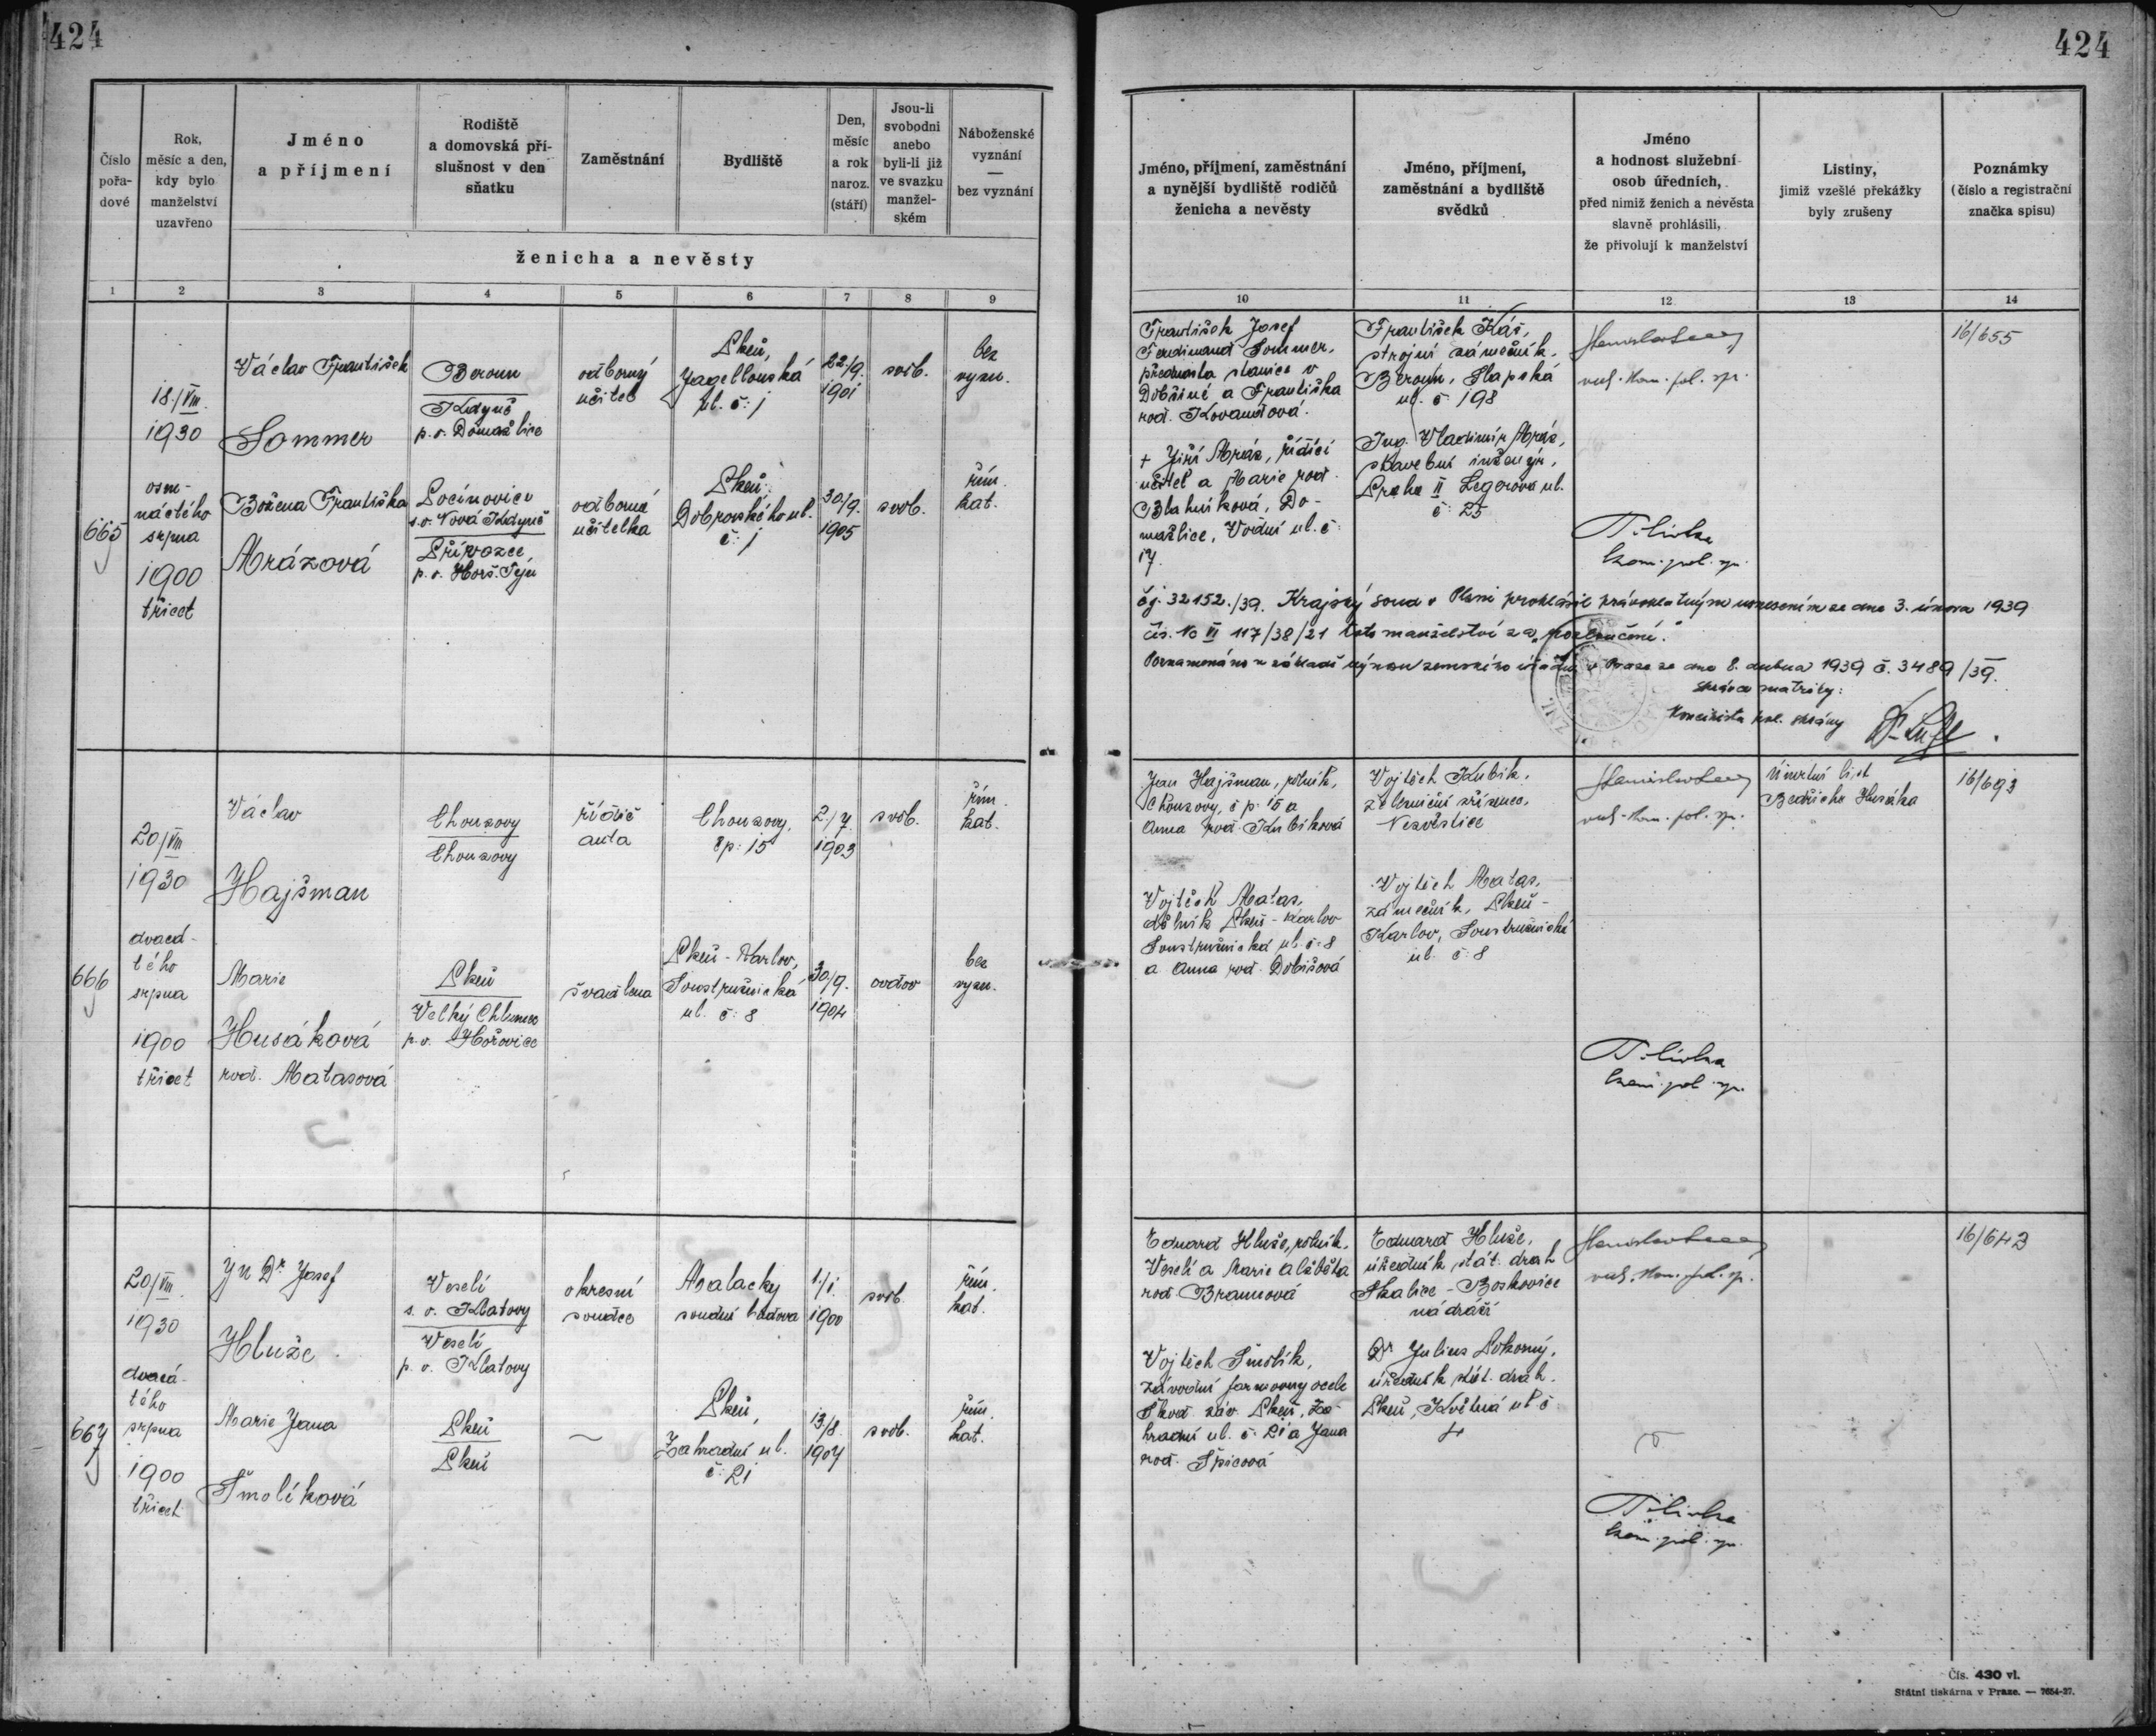 424
424
Číslo
pořa-
dové
Rok,
měsíc a den,
kdy bylo
manželství
uzavřeno
Jméno
a příjmení
Rodiště
a domovská pří-
slušnost v den
sňatku
Zaměstnání
Bydliště
Den,
měsíc
a rok
naroz.
(stáří)
Jsou-li
svobodni
anebo
byli-li již
ve svazku
manžel-
ském
Náboženské
vyznání
—
bez vyznání
ženicha a nevěsty
Jméno, příjmení, zaměstnání
a nynější bydliště rodičů
ženicha a nevěsty
Jméno, příjmení,
zaměstnání a bydliště
svědků
Jméno
a hodnost služební
osob úředních,
před nimiž ženich a nevěsta
slavně prohlásili,
že přivolují k manželství
Listiny,
jimiž vzešlé překážky
byly zrušeny
Poznámky
(číslo a registrační
značka spisu)
1 2 3 4 5 6 7 8 9 10 11 12 13 14
665
18./VIII.
1930
osm-
náctého
srpna
1900
třicet
Václav František
Sommer
Beroun
Kdyně
p. o. Domažlice
odborný
učitel
Plzeň,
Jagellonská
ul. č: 1
22/9.
1901
svob.
bez
vyzn.
Božena Františka
Mrázová
Pocínovice
s. o. Nová Kdyně
Přívozec,
p. o. Horš. Týn
odborná
učitelka
Plzeň,
Dobrovského ul.
č: 1
30/9.
1905
svob.
řím.
kat.
František Josef
Ferdinand Sommer,
přednosta stanice v
Dobřině a Františka
rod. Kovandová.
+ Jiří Mráz, řídící
učitel a Marie rod.
Blahníková, Do-
mažlice, Vodní ul. č:
17.
František Káš,
strojní zámečník,
Beroun, Slapská
ul. č: 198
Ing. Vladimír Mráz,
stavební inženýr,
Praha II Legerova ul.
č: 25
vrch. kom. pol. spr.
kom. pol. spr.
16/655
čj. 32152./39. Krajský soud v Plzni prohlásil právoplatným usnesením ze dne 3. února 1939
čís. Nc VI 117/38/21 toto manželství za „rozloučené."
Poznamenáno na základě výnosu zemského úřadu v Praze ze dne 8. dubna 1939 č. 3489/39.
Správce matriky:
Koncipista pol. správy
666
20/VIII
1930
dvacá-
tého
srpna
1900
třicet
Václav
Hajšman
Chouzovy
Chouzovy
řidič
auta
Chouzovy,
čp: 15
2./7.
1903
svob.
řím.
kat.
Marie
Husáková
rod. Matasová
Plzeň
Velký Chlumec
p. o. Hořovice
švadlena
Plzeň - Karlov,
Soustružnická
ul. č: 8
30/9.
1904
ovdov
bez
vyzn.
Jan Hajšman, rolník,
Chouzovy, č p: 15 a
Anna rod. Kubíková
Vojtěch Matas,
dělník Plzeň - Karlov
Soustružnická ul. č: 8
a Anna rod. Dobišová
Vojtěch Kubík,
železniční zřízenec,
Nezvěstice
Vojtěch Matas,
zámečník, Plzeň -
Karlov, Soustružnická
ul. č: 8
vrch. kom. pol. spr.
kom. pol. spr.
Úmrtní list
Bedřicha Husáka
16/693
667
20/VIII.
1930
dvacá-
tého
srpna
1900
třicet
JUDr Josef
Hluže
Veselí
s. o. Klatovy
Veselí
p. o. Klatovy
okresní
soudce
Malacky
soudní budova
1./1.
1900
svob.
řím.
kat.
Marie Jana
Šmolíková
Plzeň
Plzeň
~
Plzeň,
Zahradní ul.
č: 21
13/8.
1904
svob.
řím.
kat.
Eduard Hluže, rolník,
Veselí a Marie Alžběta
rod. Braunová
Vojtěch Šmolík,
závodní
Škod. záv. Plzeň, Za-
hradní ul. č: 21 a Jana
rod. Špicová
Eduard Hluže,
úředník stát. drah
Skalice - Boskovice
nádraží
Dr Julius Pokorný,
úředník stát. drah.
Plzeň, Květná ul. č:
4
vrch. kom. pol. sp.
kom. pol. spr.
16/643
Čís. 430 vl.
Státní tiskárna v Praze. — 7654-27.